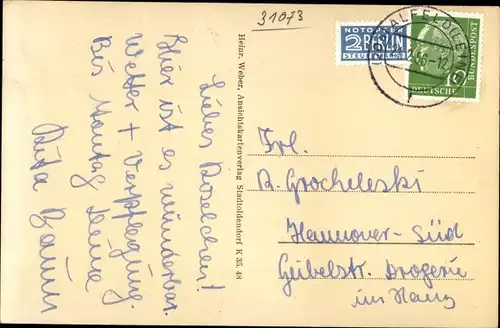 31073
NOTOPFER
2 BERLIN
STEUERMARKE
DEUTSCHE
BUNDESPOST
10
Heinr. Weber, Ansichtskartenverlag Stadtoldendorf K 35, 48
Liebes Röselchen!
Hier ist es wunderbar.
Wetter + Verpflegung.
Bis Montag Deine
Rita
Frl.
R. Grocheleski
Hannover-Süd
Geibelstr. Drogerie
im Haus